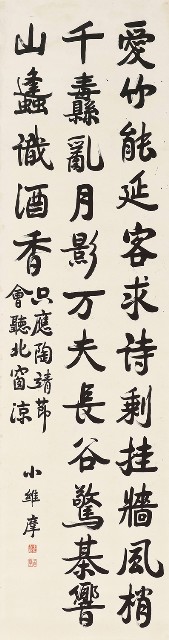 愛竹能延客求詩剩挂牆風梢
千纛亂月影万夫長谷驚棊響
山蠭識酒香
只應陶靖節
會聽北窗涼
小維摩